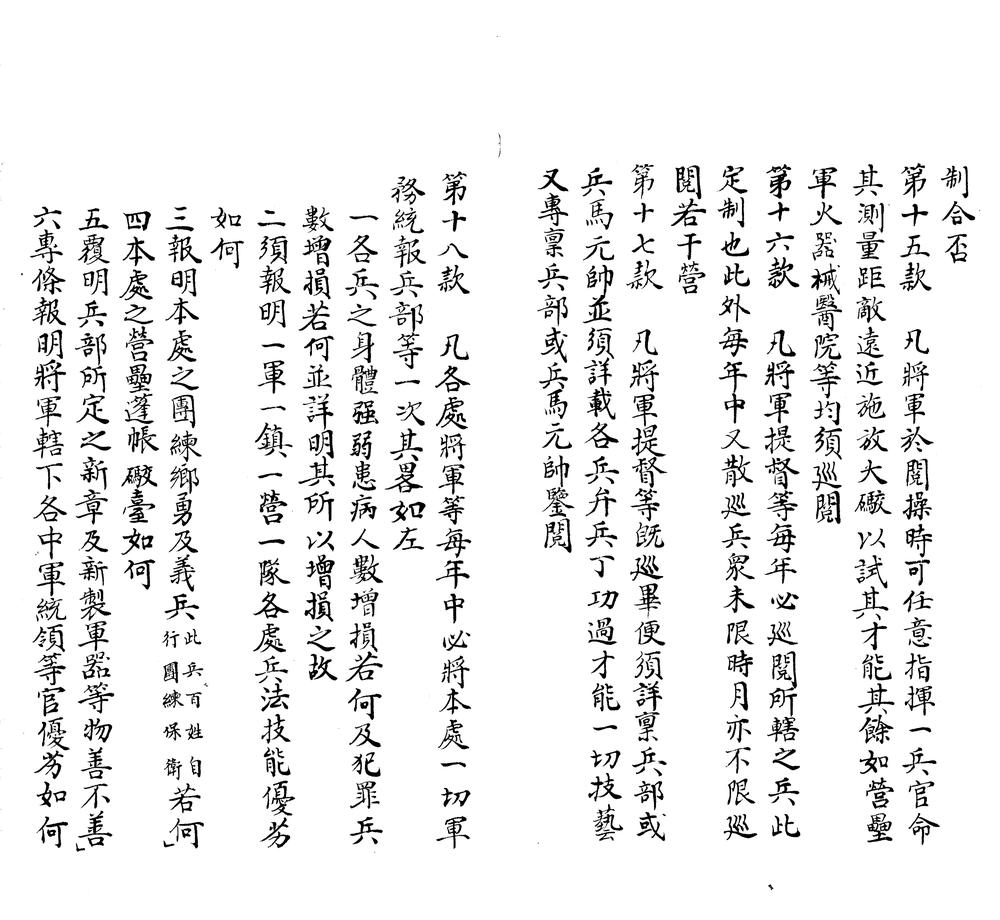 制合否
第十五款　凡將軍於閱操時可任意指揮一兵官命
其測量距敵遠近施放大礮以試其才能其餘如營壘
軍火器械醫院等均須巡閱
第十六款　凡將軍提督等每年必巡閱所轄之兵此
定制也此外每年中又散巡兵衆未限時月亦不限巡
閱若干營
第十七款　凡將軍提督等既巡畢便須詳稟兵部或
兵馬元帥並須詳載各兵弁兵丁功過才能一切技藝
又專稟兵部或兵馬元帥鑒閱
第十八款　凡各處將軍等每年中必將本處一切軍
務統報兵部等一次其畧如左
一各兵之身體强弱患病人數增損若何及犯罪兵
數增損若何並詳明其所以增損之故
二須報明一軍一鎮一營一隊各處兵法技能優劣
如何
三報明本處之團練鄉勇及義兵此兵百姓自行團練保衛若何
四本處之營壘蓬帳礮臺如何
五覆明兵部所定之新章及新製軍器等物善不善
六專條報明將軍轄下各中軍統領等官優劣如何